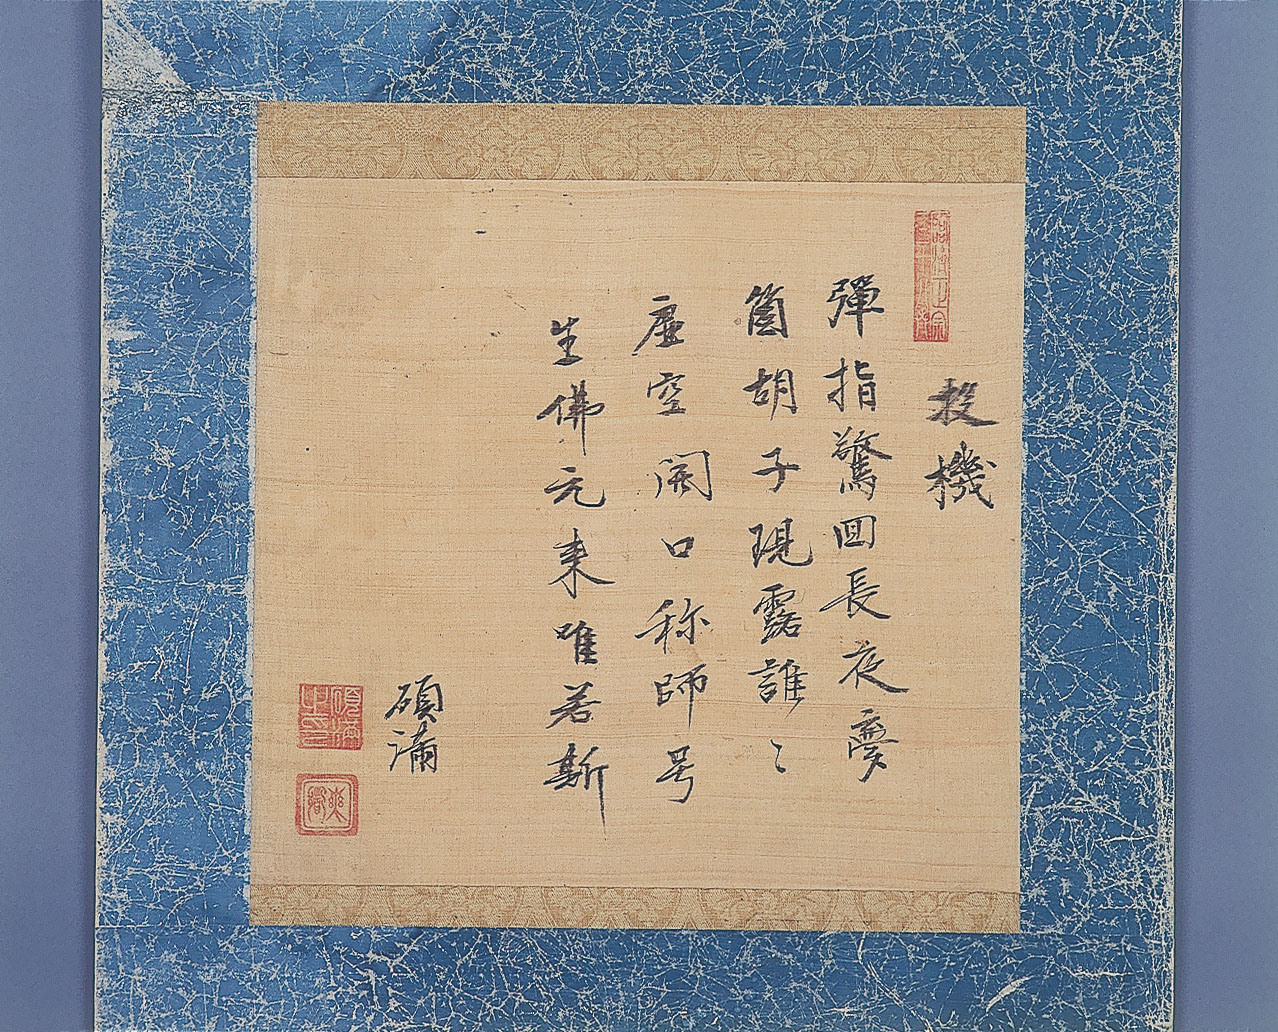 投機
彈指驚回長夜夢
箇胡子現露誰〻
虛空開口称師号
生佛元来唯若斯
碩潚